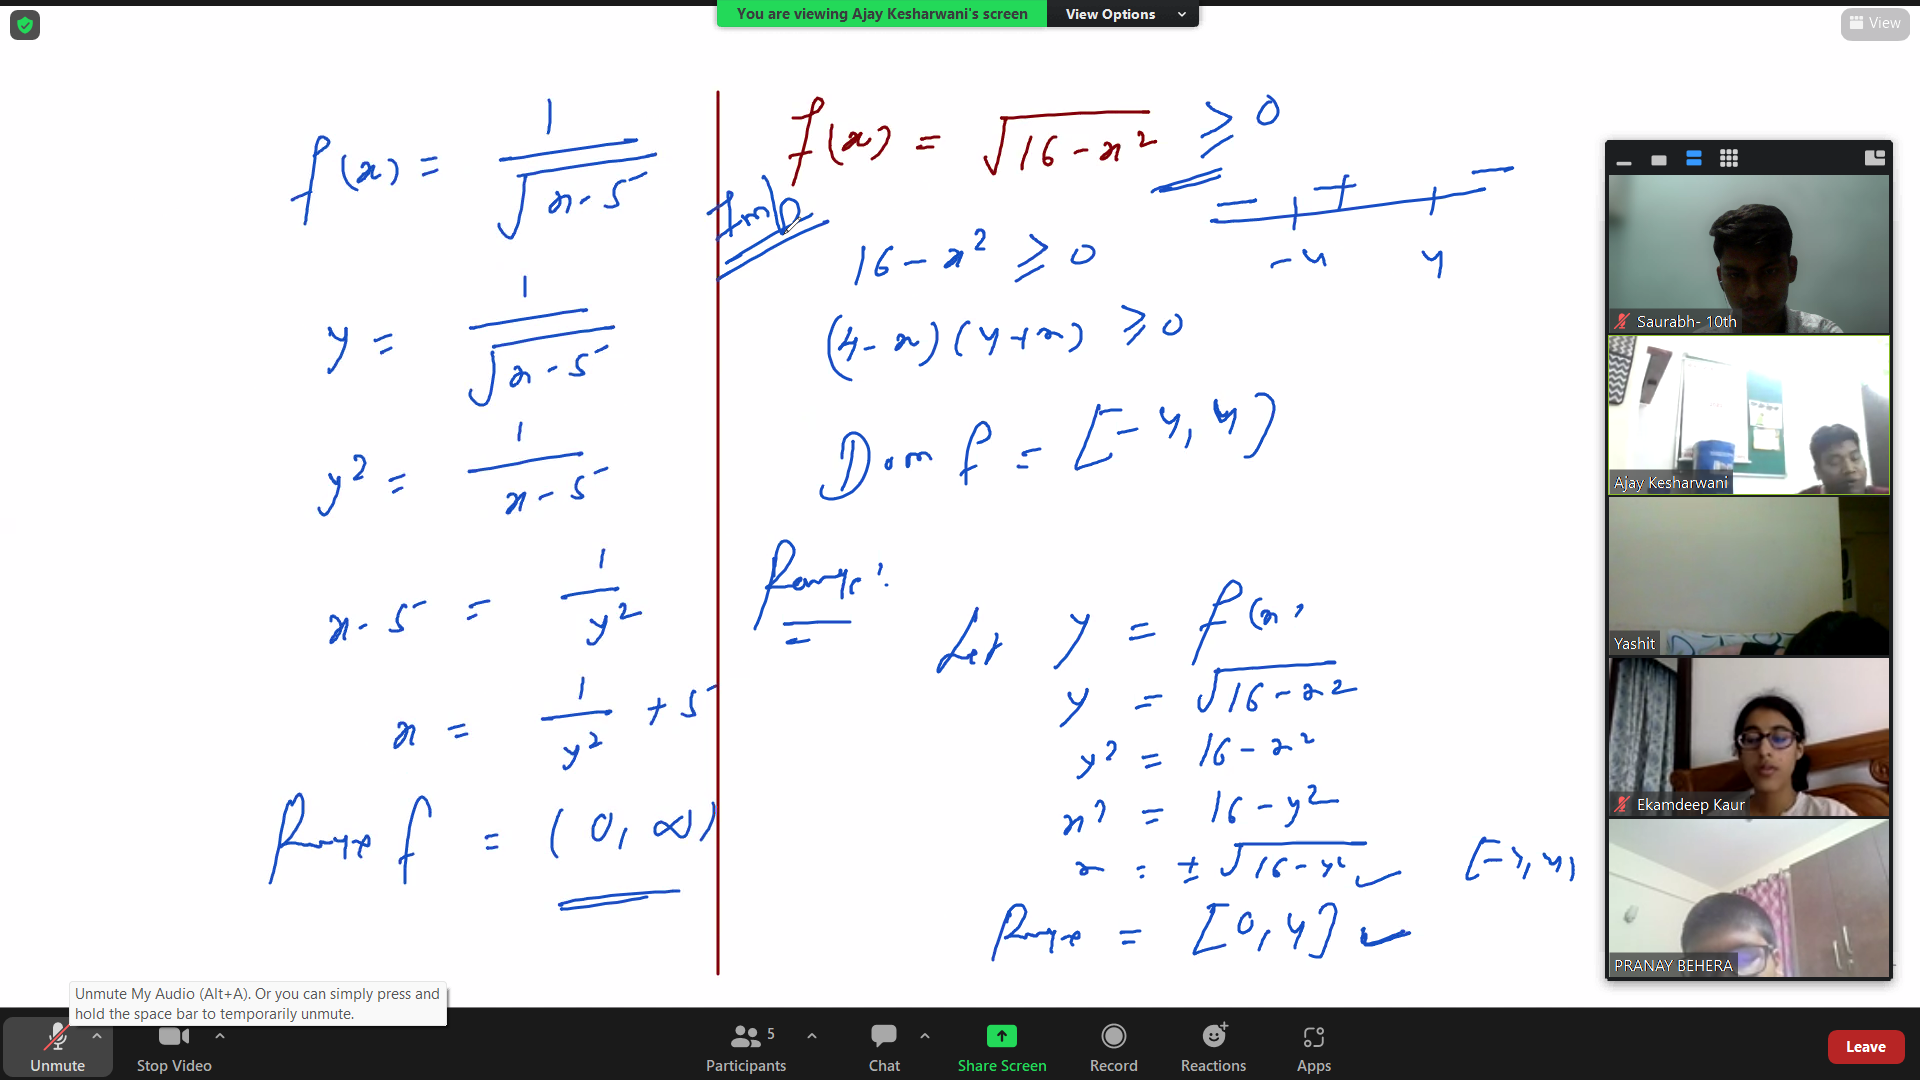 You are viewing Ajay Kesharwani's screen View Options
View
f(x) = 1/√(x-5)
y = 1/√(x-5)
y² = 1/(x-5)
x-5 = 1/y²
x = 1/y² + 5
Range f = (0, ∞)
Imp
f(x) = √(16-x²) ≥ 0
- + -
-4 4
16-x² ≥ 0
(4-x)(4+x) ≥ 0
Dom f = [-4, 4]
Range:
Let y = f(x)
y = √(16-x²)
y² = 16-x²
x² = 16-y²
x = ± √(16-y²) ✓
Range = [0, 4] ✓
Saurabh- 10th
Ajay Kesharwani
Yashit
Ekamdeep Kaur
PRANAY BEHERA
Unmute My Audio (Alt+A). Or you can simply press and
hold the space bar to temporarily unmute.
Unmute
Stop Video
Participants 5
Chat
Share Screen
Record
Reactions
Apps
Leave